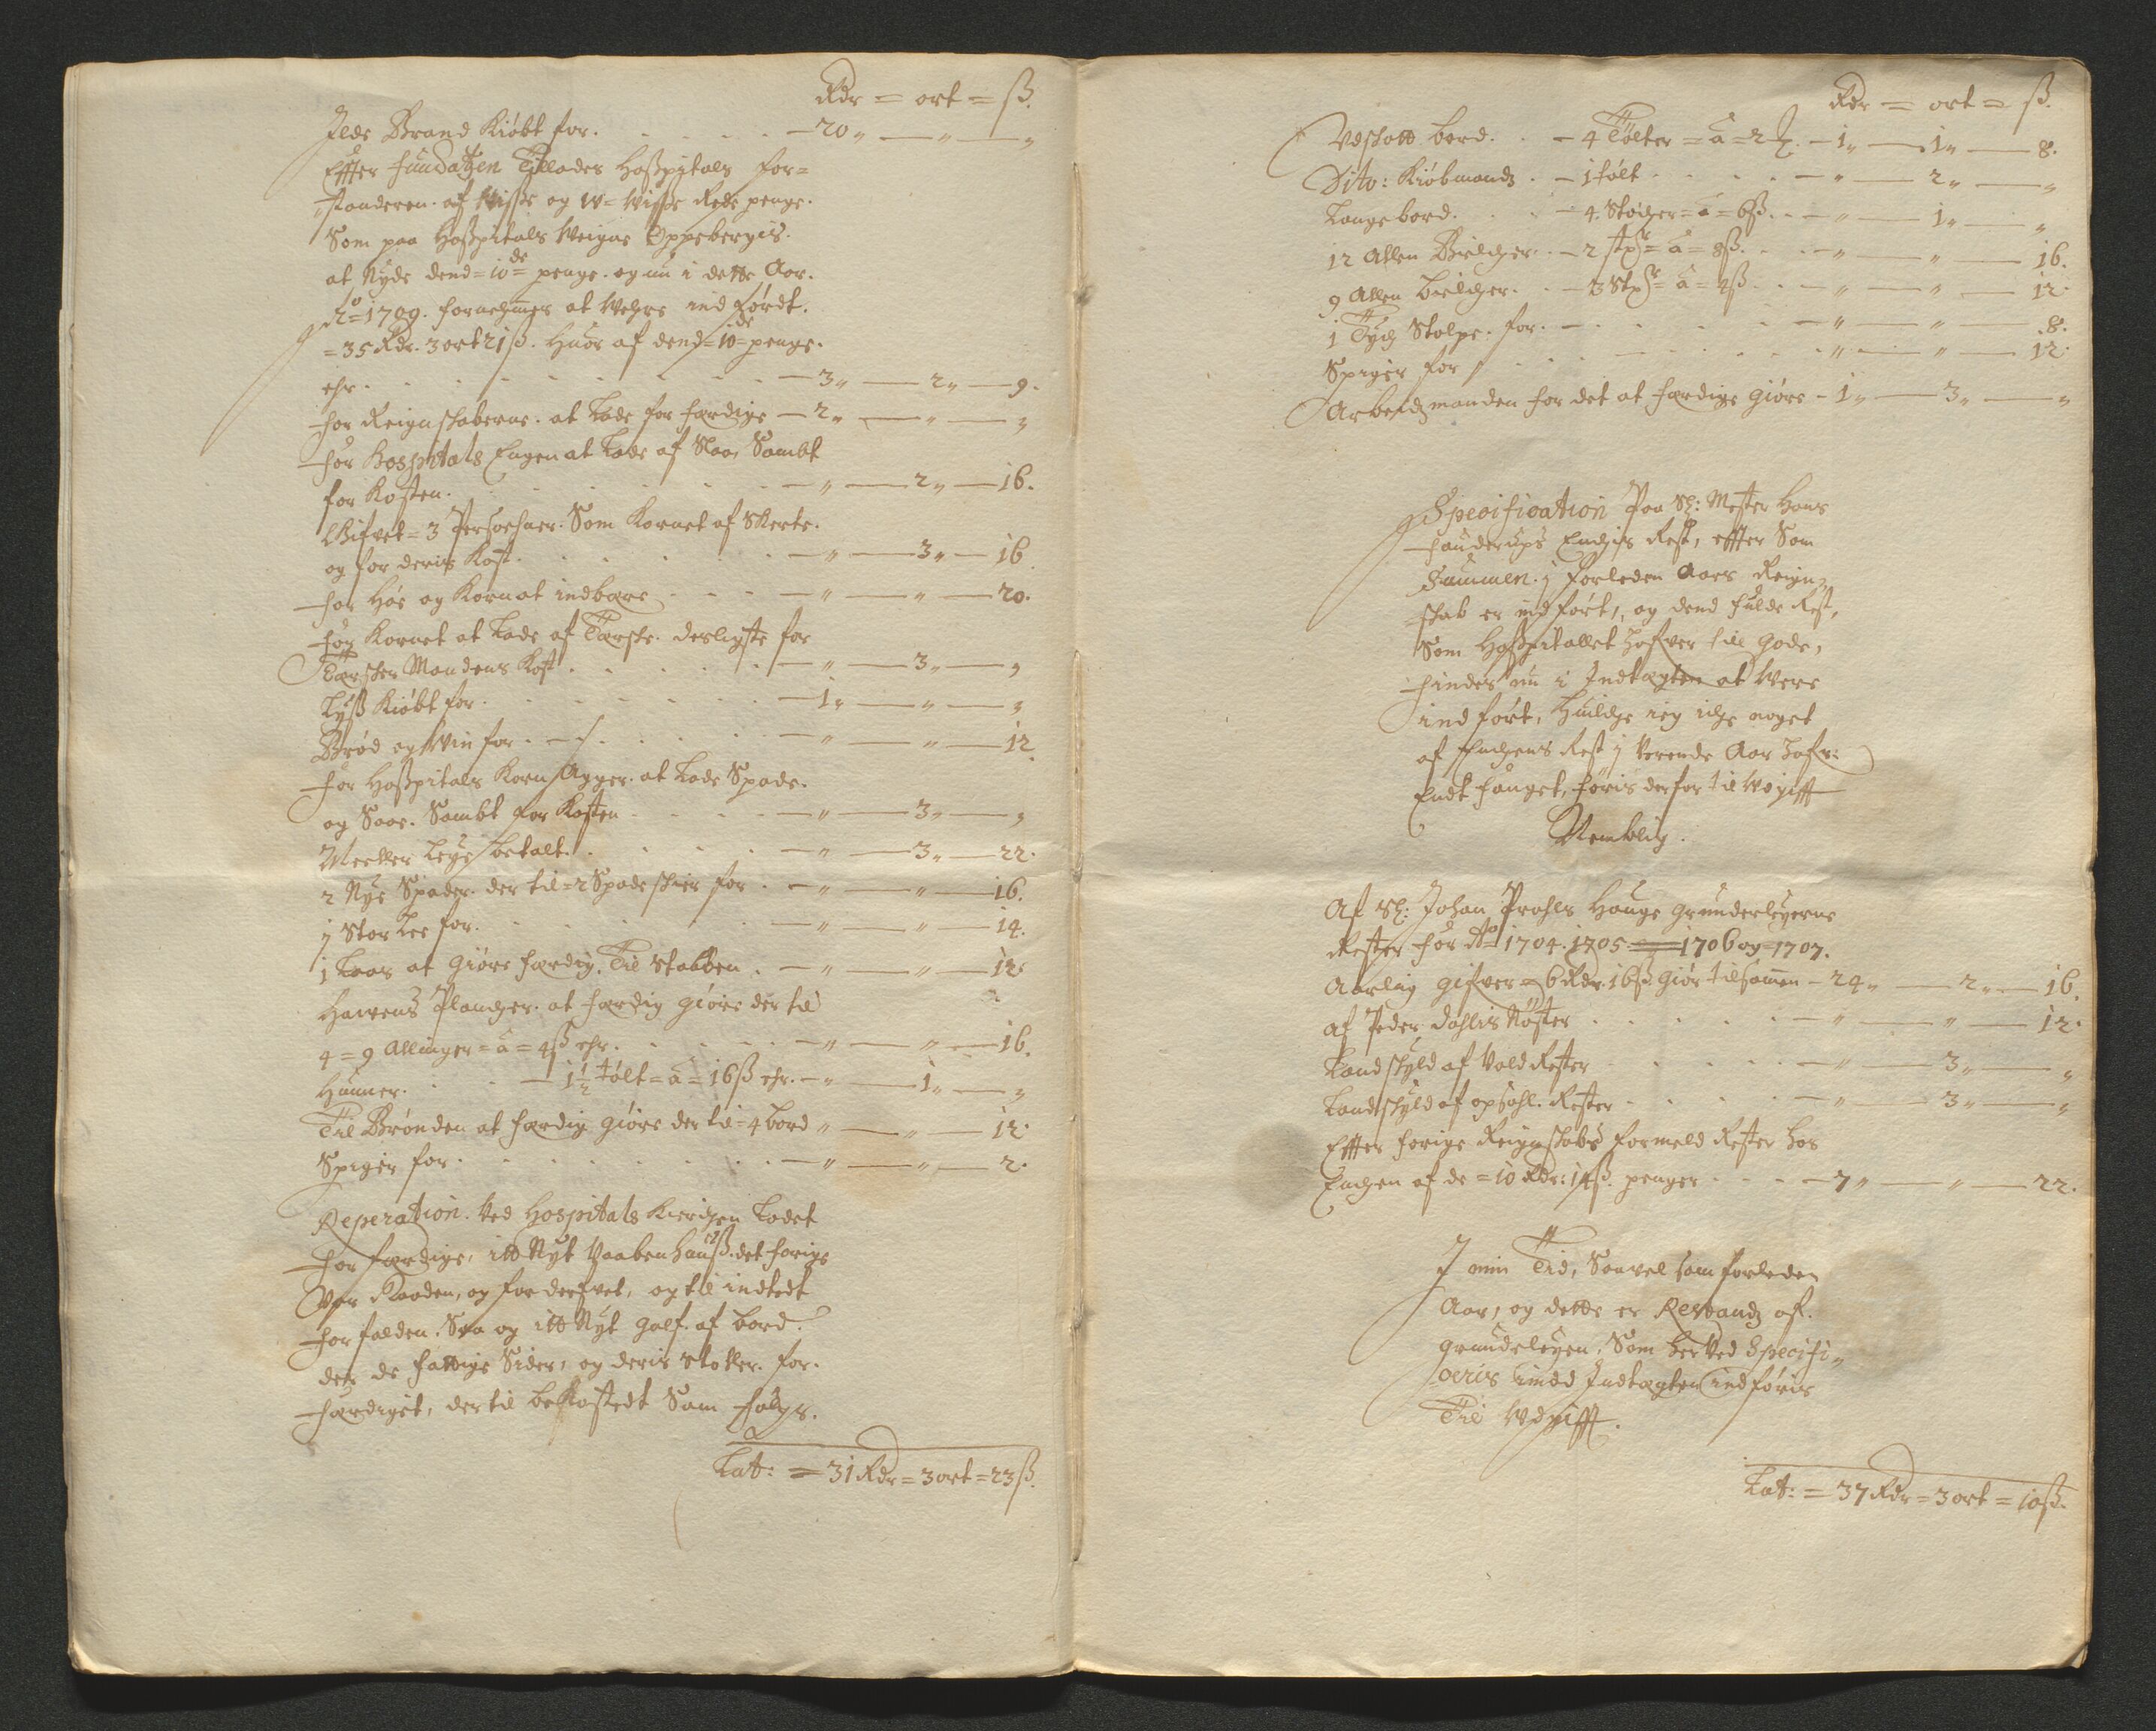 Rdr = ort = ß.
Ilde Brand Kiøbt for. — 20 „ — „ — „
Effter fundatzen Tillades Hoßpitals for=
standeren. af Wisse og W=Wisse Rede penge.
Som paa Hoßpitals Weigne Oppebergis.
at Nyde dend=10de= penge. og nu i dette Aar.
Ao=1709. fornehmes at Wehre ind førdt.
=35 Rdr. 3 ort 21 ß. Huor af dend=10de=penge.
ehr. — 3 „ — 2 „ — 9.
for Reignskaberne. at Lade for færdige — 2 „ — „ — „
for Hospitals Engen at Lade af Slaae Sambt
for Kosten. — „ — 2 „ — 16.
Gifvet=3 Persohner. Som Kornet af Skerte.
og for deris Kost. — „ — 3 „ — 16
for Høe og Korn at indbære — „ — „ — 20.
for Kornet at Lade af Tærske. desligste for
Tærsker Mandens Kost. — „ — 3 „ — „
Lyß Kiøbt for. — 1 „ — „ — „
Brød og Win for. — „ — „ — 12
for Hoßpitals Korn Agger. at Lade Spade.
og Saae. Sambt for Kosten — „ — 3 „ — „
Meeller Leye betalt. — „ — 3 „ — 22.
2 Nye Spader. der til=2 Spade skier for. — „ — „ — 16.
j Stor Lee for. — „ — „ — 14.
1 Laas at giøre færdig. Til Stabben. — „ — „ — 12.
Hawens Plancher. at færdig giøre der til
4=9 Allinger=â=4ß ehr. — „ — „ — 16.
Hunner. — 1½ tølt=â=16 ß ehr. — „ — 1 „ — „
Til Brønden at færdig giøre der til=4 bord „ — „ — 12.
Spiger for. — „ — „ — 2.
Reperation. Ved Hospitals Kierchen Ladet
for færdige, itt Nyt Vaabenhauß. det forige
Var Raaden, og forderfvet, og til indtedt
forfalden. Saa og itt Nyt golf. af bord.
der de fattige Sider, og deris Stoller. for.
færdiget, der til bekostedt Som følger.
Lat: = 31 Rdr = 3 ort = 23 ß.
Rdr = ort = ß.
Vdskott bord. — 4 Tølter = â = — 1 „ — 1 „ — 8.
Dito: Kiøbmands. — 1 tølt. — „ — 2 „ — „
Lange bord. — 4. Støcher = â = 6 ß. — „ — 1 „ — „
12 Allen Bielcher. — 2 = â = 8 ß. — „ — „ — 16.
9 Allen bielcher. — 3 = â = 4 ß. — „ — „ — 12.
1 Tyk Stolpe. for. — „ — „ — 8.
Spiger for — „ — „ — 12.
Arbeidsmanden for det at færdige giøre — 1 „ — 3 „ — „
Specification Paa Sl: Mester Hans
fauderups Enchis Rest, effter Som
Summen. j forleden Aars Reign=
skab er ind ført, og dend fulde Rest,
Som Hoßpitallet hafver til gode,
findes nu i Indtægten at Were
ind ført, Huilche ieg iche noget
af Enchens Rest j Verende Aar hafr:
Endt fanget, føris der for til Wdgiffst
Nemblig.
Af Sl: Johan Prahls Hauge grunderleyerne
Rester for Ao= 1704. 1705. 1706 og=1707.
Aarlig gifver=6 Rdr. 16 ß. giør tilsamen — 24 „ — 2 „ — 16.
af Peder Dahlis Nøster — „ — „ — 12.
Landskyld af Vold Rester — „ — 3 „ — „
Landskyld af opsahl. Rester — „ — 3 „ — „
Effter forige Reignskabs formeld Rester hos
Enchen af de=10 Rdr: 14 ß. penger — 7 „ — „ — 22.
I min Tid, Saavel som forleden
Aar, og dette er Restands af.
grundeleyen. Som her Ved Specifi=
ceris imod Indtægten indføris
Til Wdgifft.
Lat: = 37 Rdr = 3 ort = 10 ß.